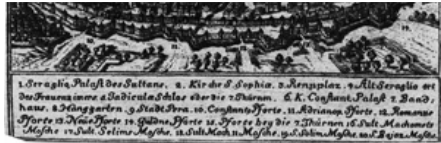 1. Seraglio Palast des Sultans. 2. Kirche S. Sophiæ. 3. Rennplaz. 4. Alt Seraglio ort
des Frauenzimers 5. Iadiculæ Schlos oder die 7 Thürnen. 6. K. Constant. Palast 7. Band
haus. 8. Hänggarten. 9. Stadt Pera. 10. Constants Pforte. 11. Adrianop. Pforte. 12. Romanus
Pforte 13. Neue Pforte 14. Guldne Pforte. 15. Pforte bey die 7 Thürnen 16. Sult. Machomets
Mosche 17. Sult. Selims Mosche. 18. Sult. Mach. II. Mosche. 19. S. Solim. Mosche. 20. S. Bajaz. Mosche